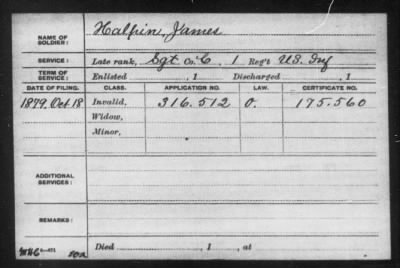 NAME OF SOLDIER: Halpin, James
SERVICE: Late rank, Sgt Co. C, 1 Reg't U.S. Inf
TERM OF SERVICE: Enlisted , 1 Discharged , 1
DATE OF FILING. CLASS. APPLICATION NO. LAW. CERTIFICATE NO.
1879, Oct 18 Invalid, 316.512 O. 175.560
Widow,
Minor,
ADDITIONAL SERVICES:
REMARKS:
Died , 1 , at